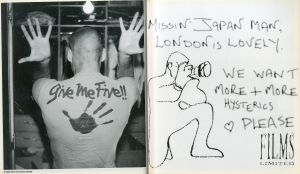 Give Me Five!!
MISSIN' JAPAN MAN,
LONDON IS LOVELY.
WE WANT
MORE + MORE
HYSTERICS
PLEASE
FILMS
LIMITED